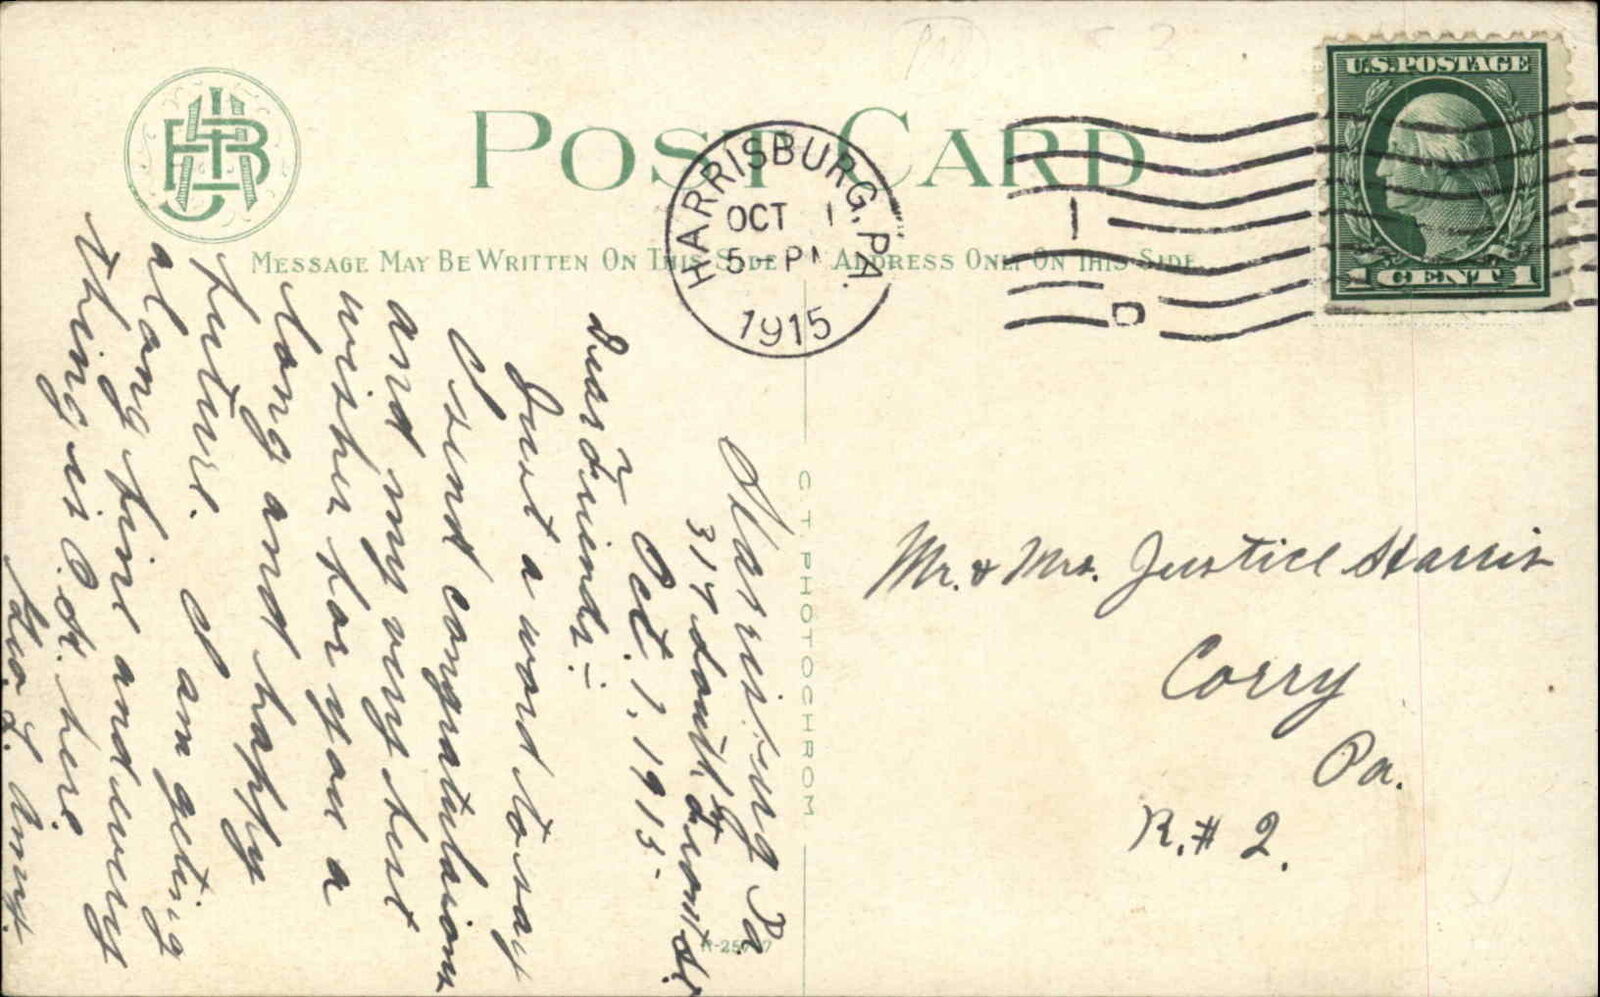 POST CARD
MESSAGE MAY BE WRITTEN ON THIS SIDE
ADDRESS ONLY ON THIS SIDE
HARRISBURG, PA.
OCT 1
5-P
1915
1
D
U.S. POSTAGE
1 CENT 1
C. T. PHOTOCHROM
Harrisburg Pa
317 South Front St.
Oct. 1, 1915
Dear Friends:-
Just a word to say
I send congratulations
and my very best
wishes for you a
long and happy
future. I am geting
along fine and every
thing is O.K. here.
Geo. L.
Mr. & Mrs. Justice Harris
Corry
Pa.
R. # 2.